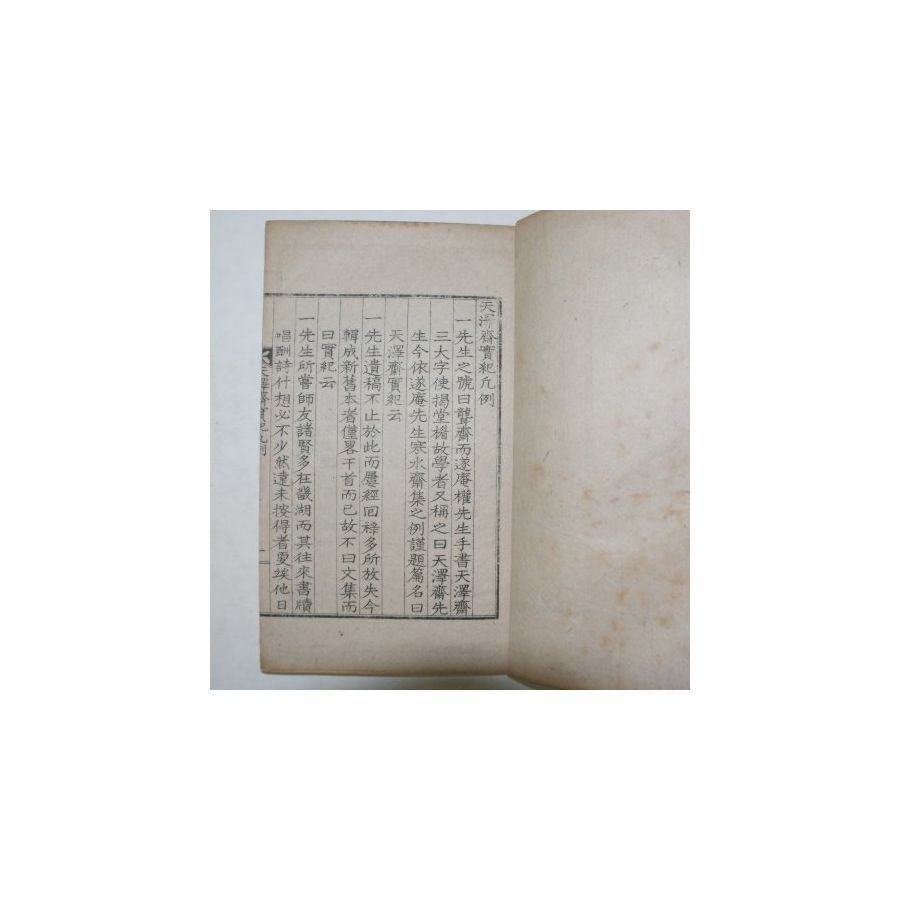 天澤齋實紀凡例
一先生之號曰聾齋而遂庵權先生手書天澤齋
三大字使揭堂楣故學者又稱之曰天澤齋先
生今依遂庵先生寒水齋集之例謹題篇名曰
天澤齋實紀云
一先生遺稿不止於此而屢經回祿多所放失今
輯成新舊本者僅畧干首而已故不曰文集而
曰實紀云
一先生所嘗師友諸賢多在畿湖而其往來書牘
唱酬詩什想必不少然遠未按得者更竢他日
天澤齋實紀凡例
一